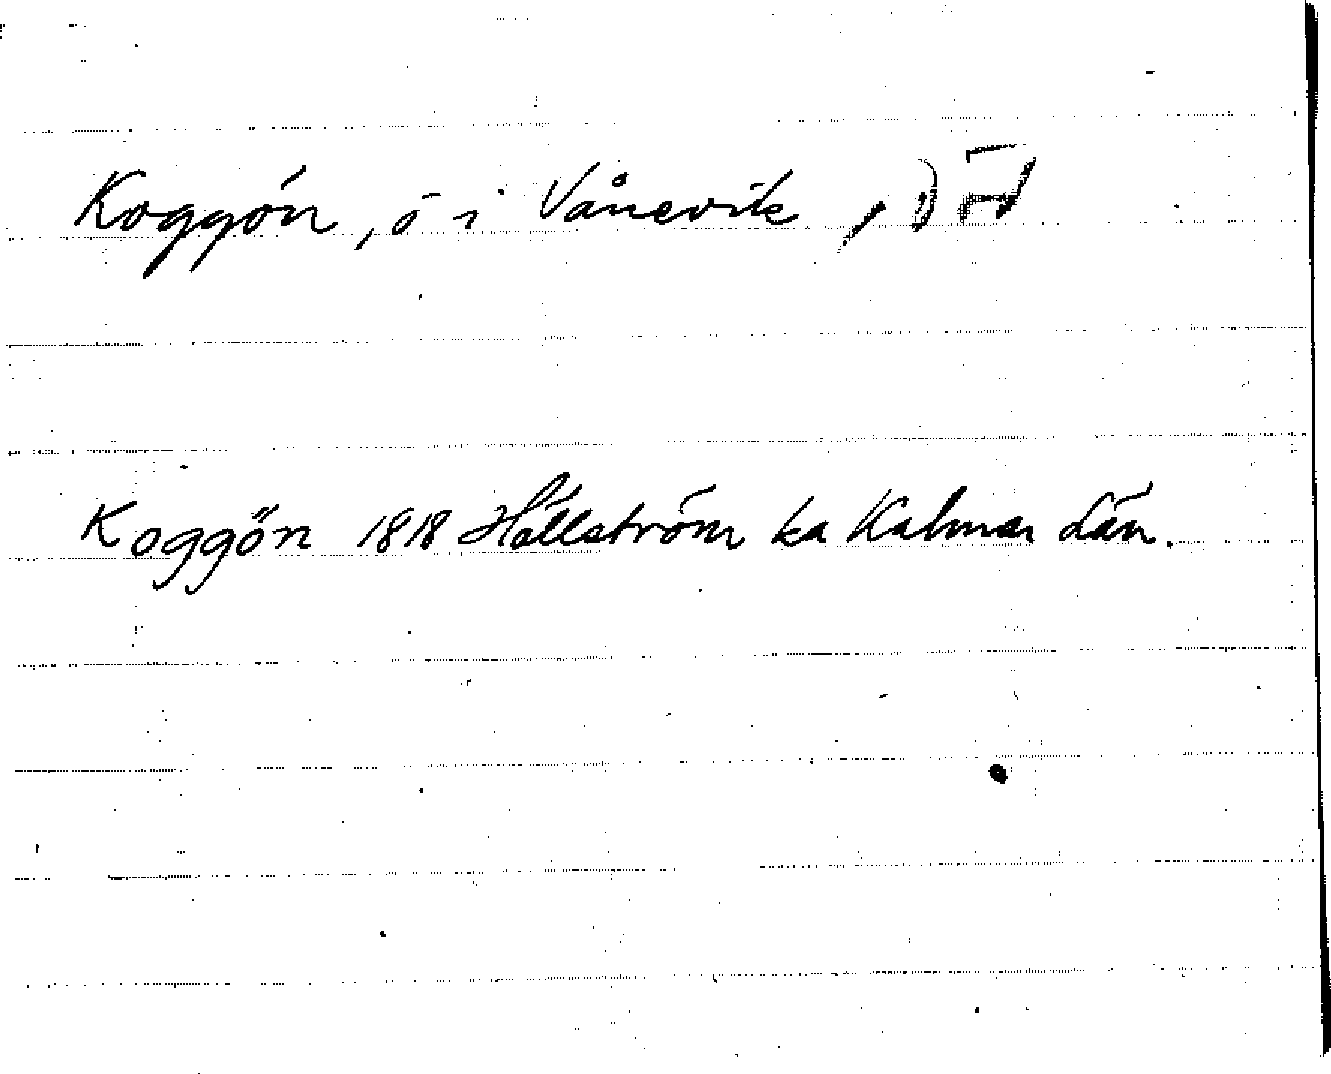 Koggön, ö i Vånevik,
Koggön 1818 Hällström ka Kalmar Län.